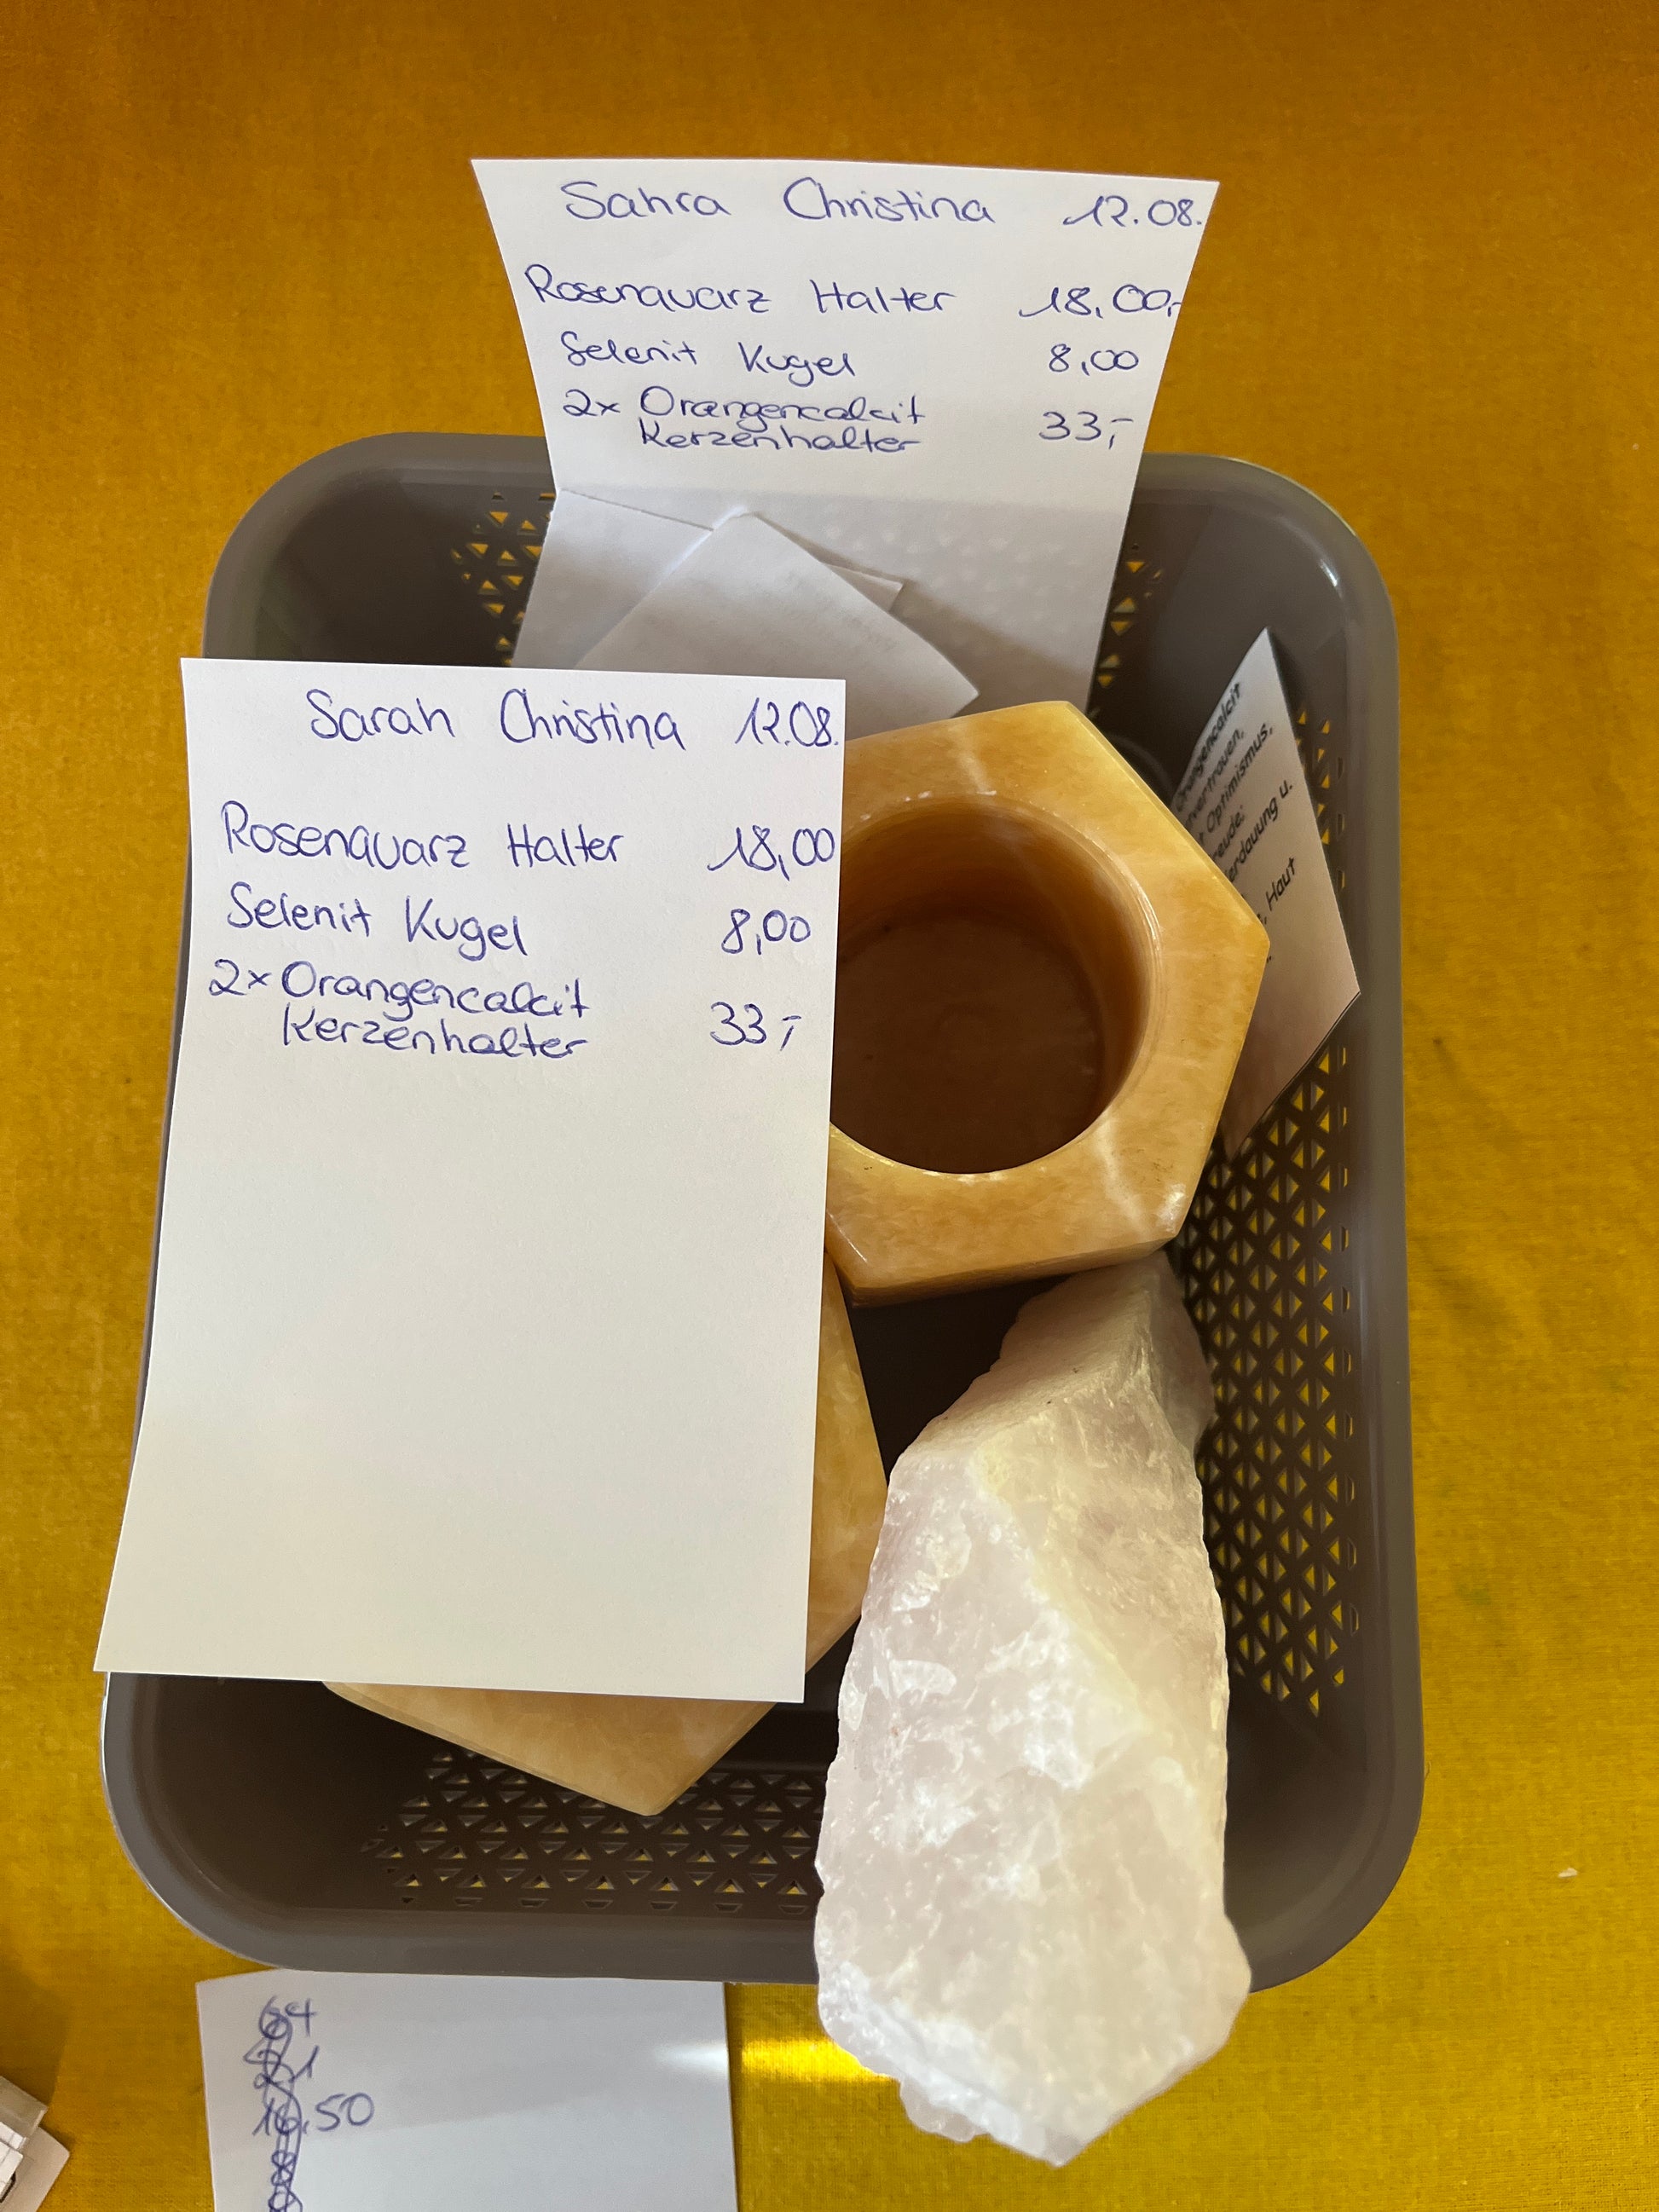 Sahra Christina 12.08.
Rosenquarz Halter 18,00,-
Selenit Kugel 8,00
2x Orangencalcit
Kerzenhalter 33,-
Sarah Christina 12.08.
Rosenquarz Halter 18,00
Selenit Kugel 8,00
2x Orangencalcit
Kerzenhalter 33,-
Orangencalcit
vertrauen,
Optimismus,
reude:
erdauung u.
, Haut
64
21
16,50